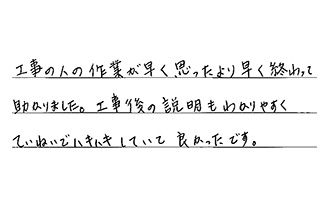 工事の人の作業が早く思ったより早く終わって
助かりました。工事後の説明もわかりやすく
ていねいでハキハキしていて良かったです。